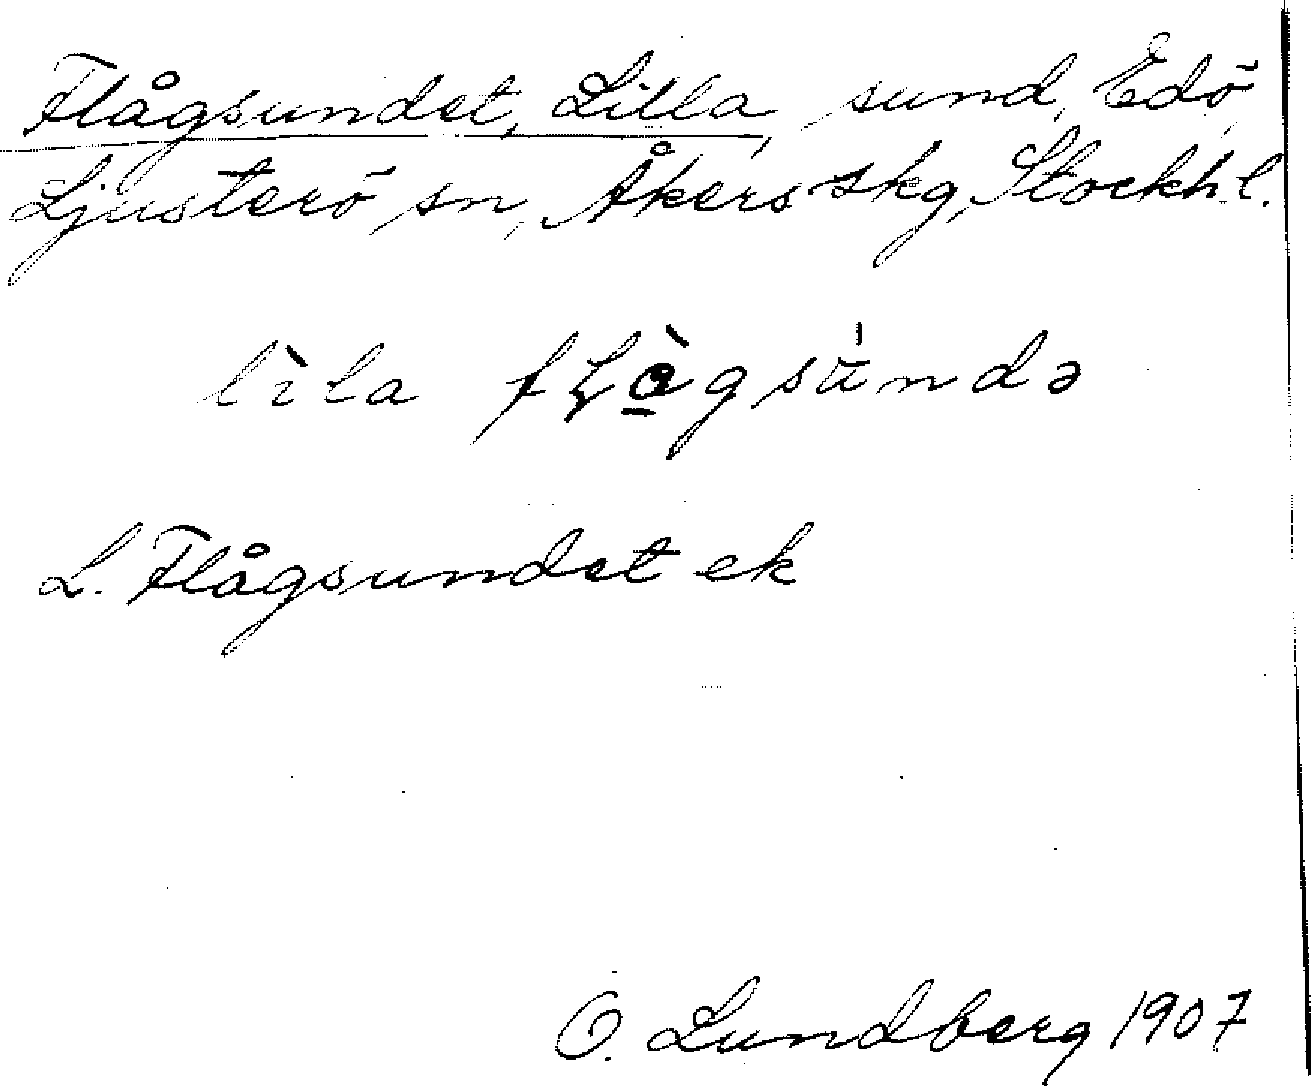 Flågsundet, Lilla, sund, Edö,
Ljusterö sn, Åkers skg, Stockh. l.
lìla fḷågsu̇ndə
L. Flågsundet ek
O. Lundberg 1907